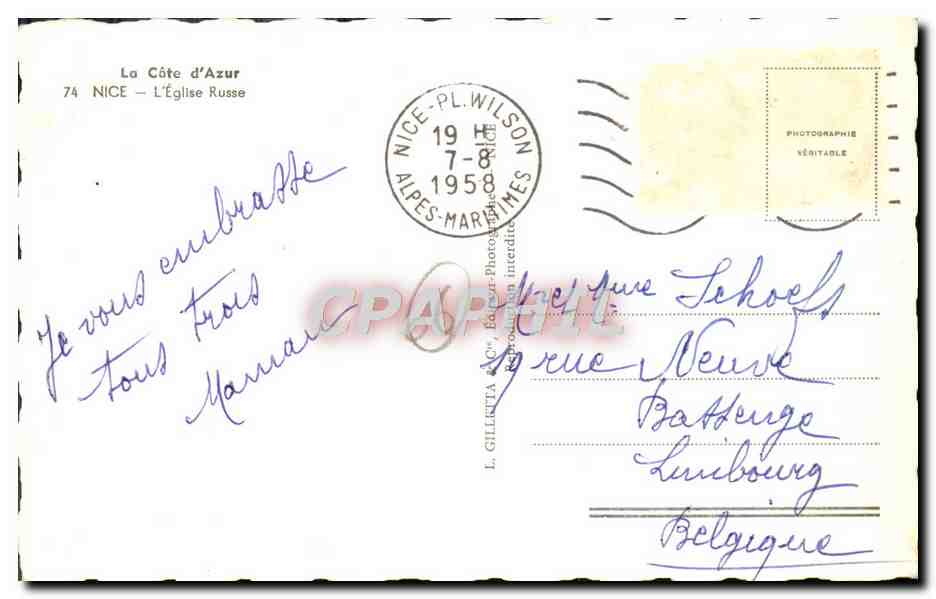 La Côte d'Azur
74 NICE — L'Église Russe
NICE-PL. WILSON
19 H
7-8
1958
ALPES-MARITIMES
PHOTOGRAPHIE
VÉRITABLE
Je vous embrasse
tous trois
Maman
CPAPHIL
L. GILLETTA & Cie, Éditeur-Photographe - NICE
Reproduction interdite
Mr et Mme Schoefs
rue Neuve
Bassenge
Limbourg
Belgique